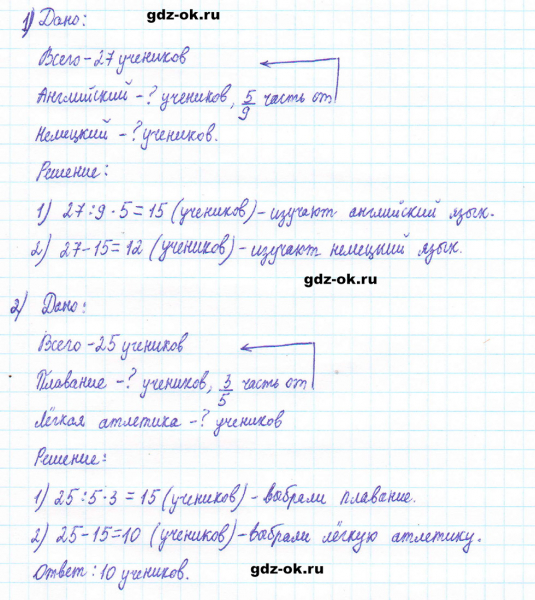 gdz-ok.ru
1) Дано:
Всего - 27 учеников
Английский - ? учеников, 5/9 часть от
Немецкий - ? учеников.
Решение:
1) 27:9·5=15 (учеников) - изучают английский язык.
2) 27-15=12 (учеников) - изучают немецкий язык.
gdz-ok.ru
2) Дано:
Всего - 25 учеников
Плавание - ? учеников, 3/5 часть от
Лёгкая атлетика - ? учеников
Решение:
1) 25:5·3=15 (учеников) - выбрали плавание.
2) 25-15=10 (учеников) - выбрали лёгкую атлетику.
Ответ: 10 учеников.
gdz-ok.ru